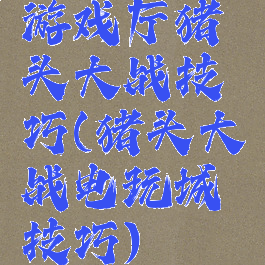 游戏厅猪
头大战技
巧(猪头大
战电玩城
技巧)